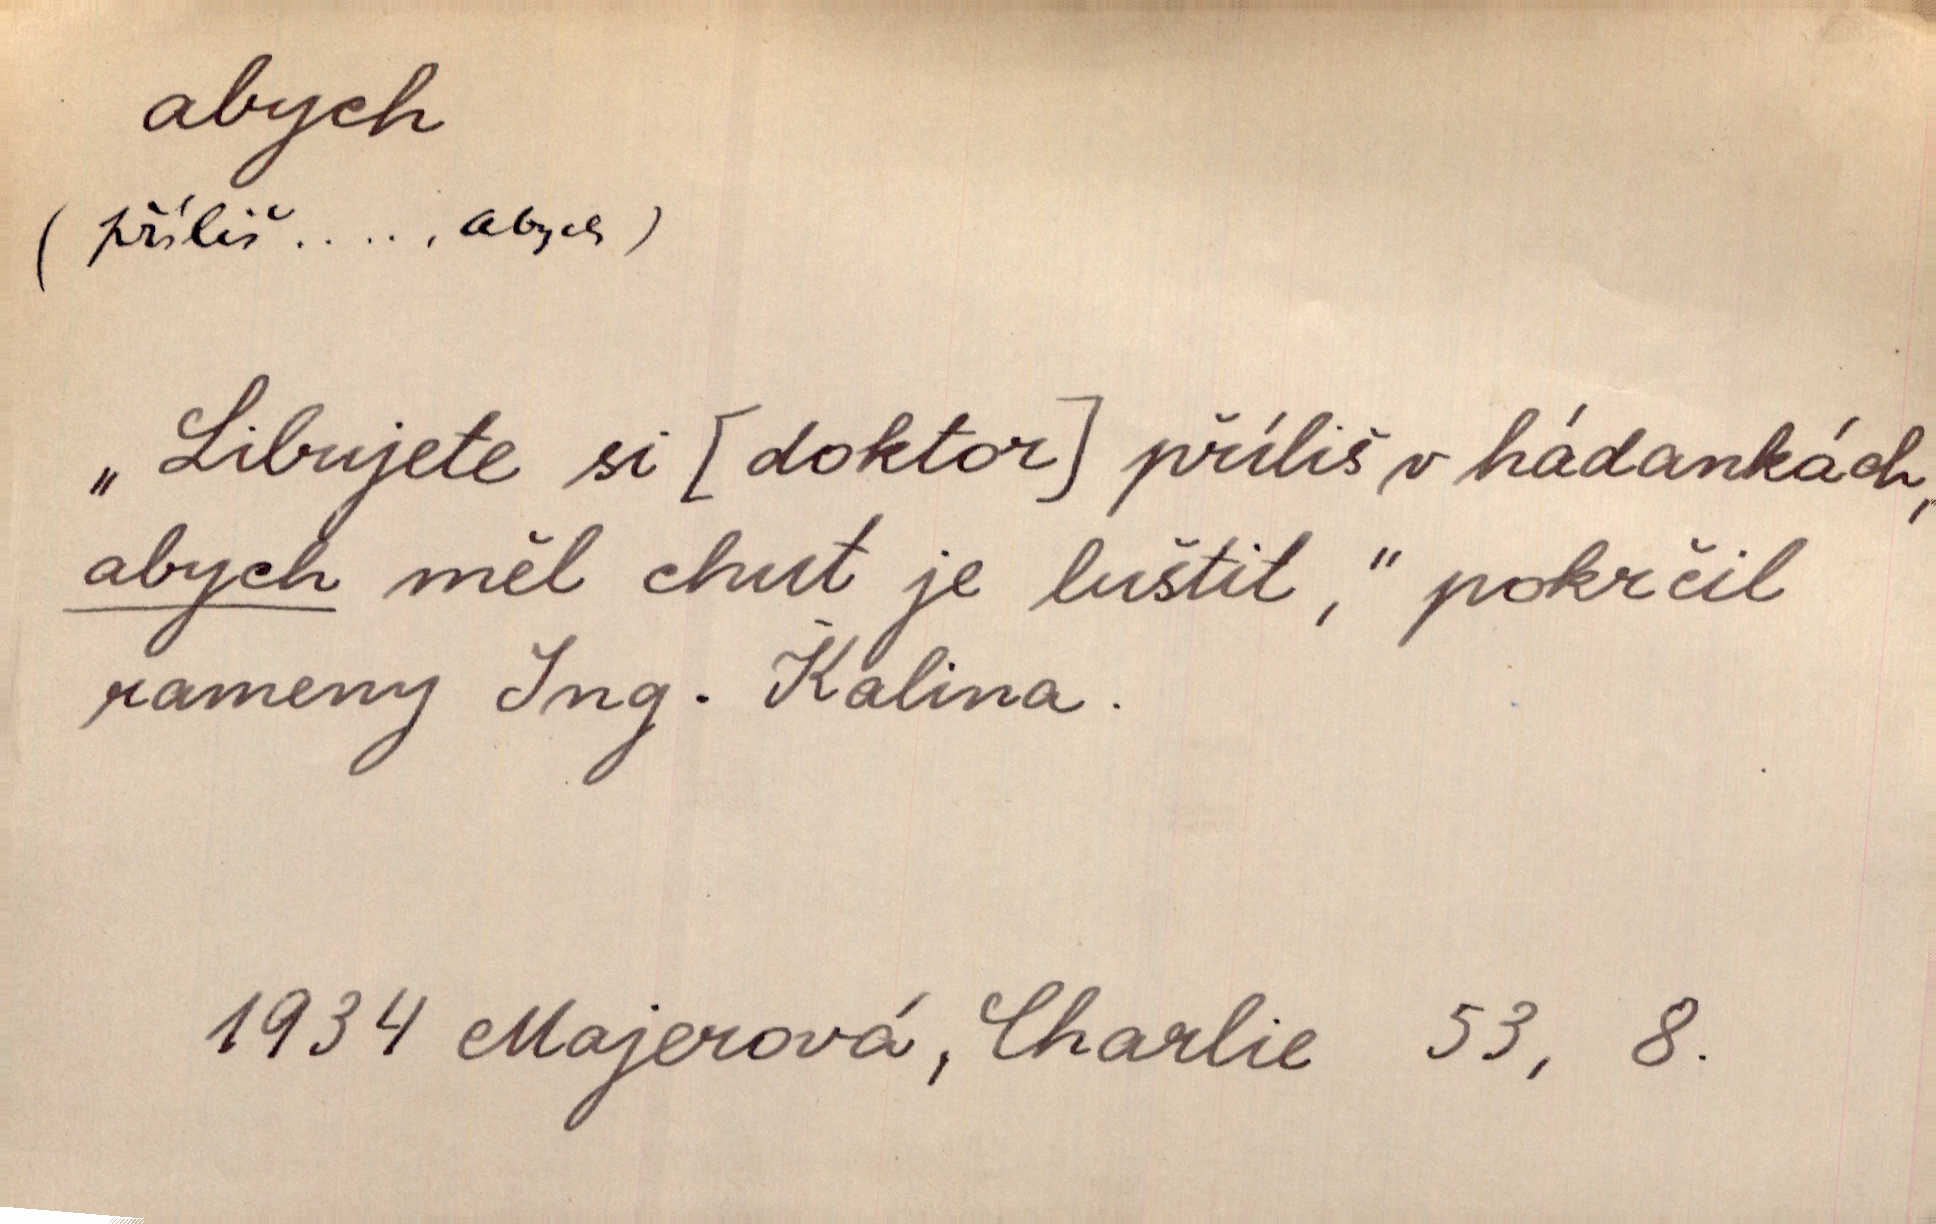 abych
(příliš . . . . , abych)
„Libujete si [doktor] příliš v hádankách,
abych měl chut je luštit," pokrčil
rameny Ing. Kalina.
1934 Majerová, Charlie 53, 8.